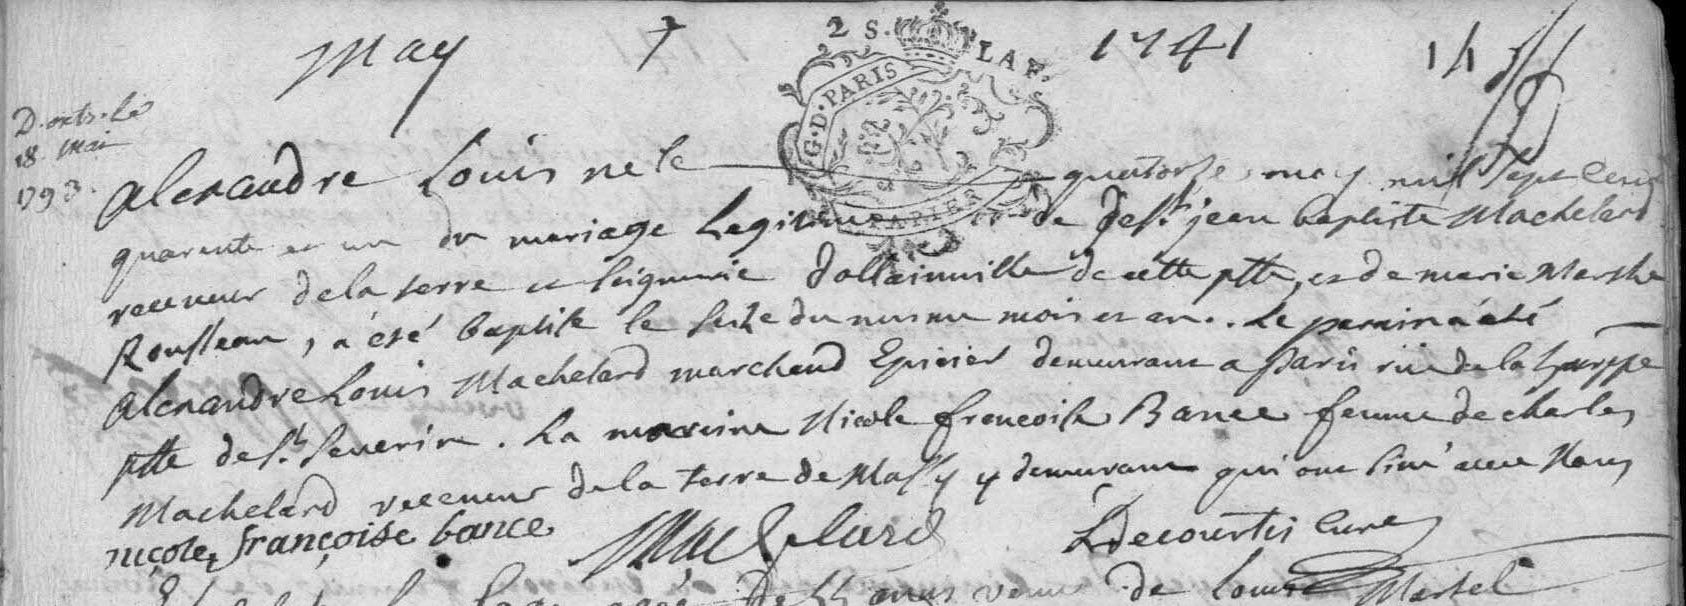 May 7 1741
2 S. LA F.
G. D. PARIS
PAPIER
D. le
18 Mai
1793.
Alexandre Louis ne le quatorze may mil sept cent
quarente et un du mariage Legitime de de Sr. jean baptiste Machelard
receveur de la terre et seigneurie dollainville de cette psse, et de marie Marthe
Rousseau, a été baptisé le seize du mesme mois et an. Le parain a été
Alexandre Louis Machelard marchand Epicier demeurant a Paris rüe de la harppe
psse de St. Severin. La mareine Nicole francoise Bance femme de charles
Machelard receveur de la terre de Massy y demeurant qui ont siné avec Nous
niçole françoise bance Machelard Decourtis curé
de Louise Martel